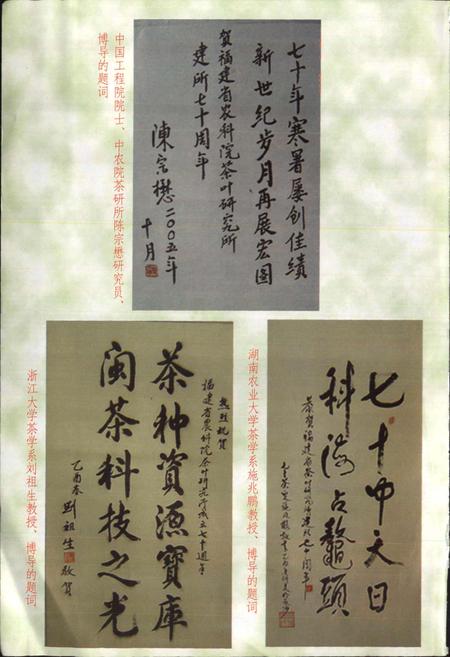 七十年寒暑屡创佳绩
新世纪步月再展宏图
贺福建省农科院茶叶研究所
建所七十周年
陳宗懋二〇〇五年
十月
中国工程院院士、中农院茶研所陈宗懋研究员、
博导的题词
七十中天日
科海占鰲頭
恭贺福建省茶叶研究所建所七十周年
湖南农业大学茶学系施兆鹏教授、博导的题词
热烈祝贺
福建省农科院茶叶研究所成立七十週年
茶种資源寶庫
闽茶科技之光
乙酉春 刘祖生 敬贺
浙江大学茶学系刘祖生教授、博导的题词